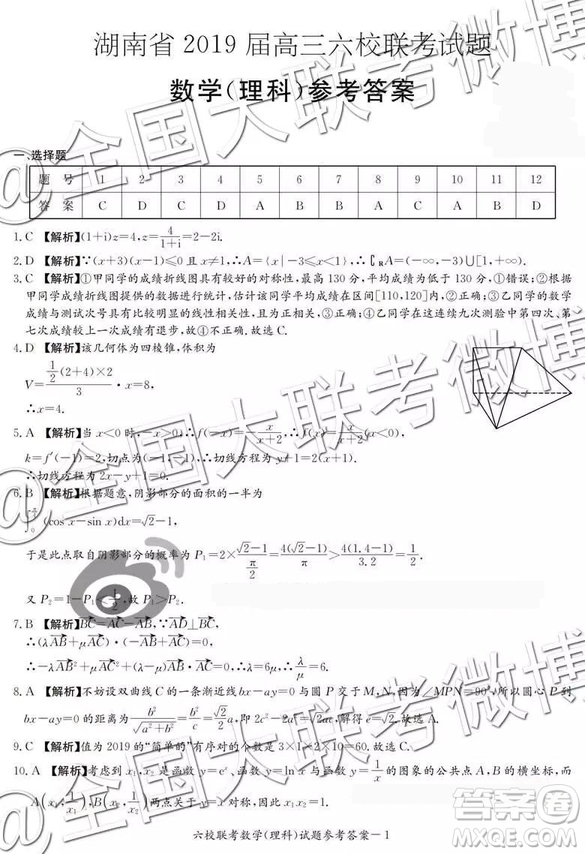 湖南省 2019 届高三六校联考试题
数学(理科)参考答案
一、选择题
题 号 1 2 3 4 5 6 7 8 9 10 11 12
答 案 C D C D A B B A C A C D
1.C 【解析】(1+i)z=4,z=4/(1+i)=2-2i.
2.D 【解析】∵(x+3)(x-1)≤0 且 x≠1,∴A={x|-3≤x<1},∴∁RA=(-∞,-3)∪[1,+∞).
3.C 【解析】①甲同学的成绩折线图具有较好的对称性,最高 130 分,平均成绩为低于 130 分,①错误;②根据
甲同学成绩折线图提供的数据进行统计,估计该同学平均成绩在区间[110,120]内,②正确;③乙同学的数学
成绩与测试次号具有比较明显的线性相关性,且为正相关,③正确;④乙同学在这连续九次测验中第四次、第
七次成绩较上一次成绩有退步,故④不正确.故选 C.
4.D 【解析】该几何体为四棱锥,体积为
V=½(2+4)×2/3·x=8,
∴x=4.
5.A 【解析】当 x<0 时,-x>0,∴f(-x)=-x/(-x+2)
k=f′(-1)=2,切点为(-1,-1),
∴切线方程为 y+1=2(x+1).
∴切线方程为 2x-y+1=0.
6.B 【解析】根据题意,阴影部分的面积的一半为
(cos x-sin x)dx=√2-1,
于是此点取自阴影部分的概率为 P₁=2×(√2-1)/(π/2)=4(√2-1)/π>4(1.4-1)/3.2=1/2.
又 P₂=1-P₁<1/2,故 P₁>P₂.
7.B 【解析】∵BC=AC-AB,AD⊥BC,
∴(λAB+μAC)·(AC-AB)=0,
∴-λAB²+μAC²+(λ-μ)AB·AC=0,∴λ=6μ,∴
8.A 【解析】不妨设双曲线 C 的一条渐近线 bx-ay=0 与圆 P 交于 M,N,因为∠MPN=90°,所以圆心 P 到
bx-ay=0 的距离为 b²/√(a²+b²)=b²/c 即 2c²-2a²
9.C 【解析】值为 2019 的“简单的”有序对的个数是 3×1×2×10=60.故选 C.
10.A 【解析】考虑到 x₁,x₂ 是函数 y=eˣ、函数 y=ln x 与函数 y=1/x 的图象的公共点 A,B 的横坐标,而
A(x₁,1/x₁),B(x₂,1/x₂)两点关于 y=x 对称,因此 x₁x₂=1.
六校联考数学(理科)试题参考答案-1
@全国大联考微博
答案圈
MXQE.COM